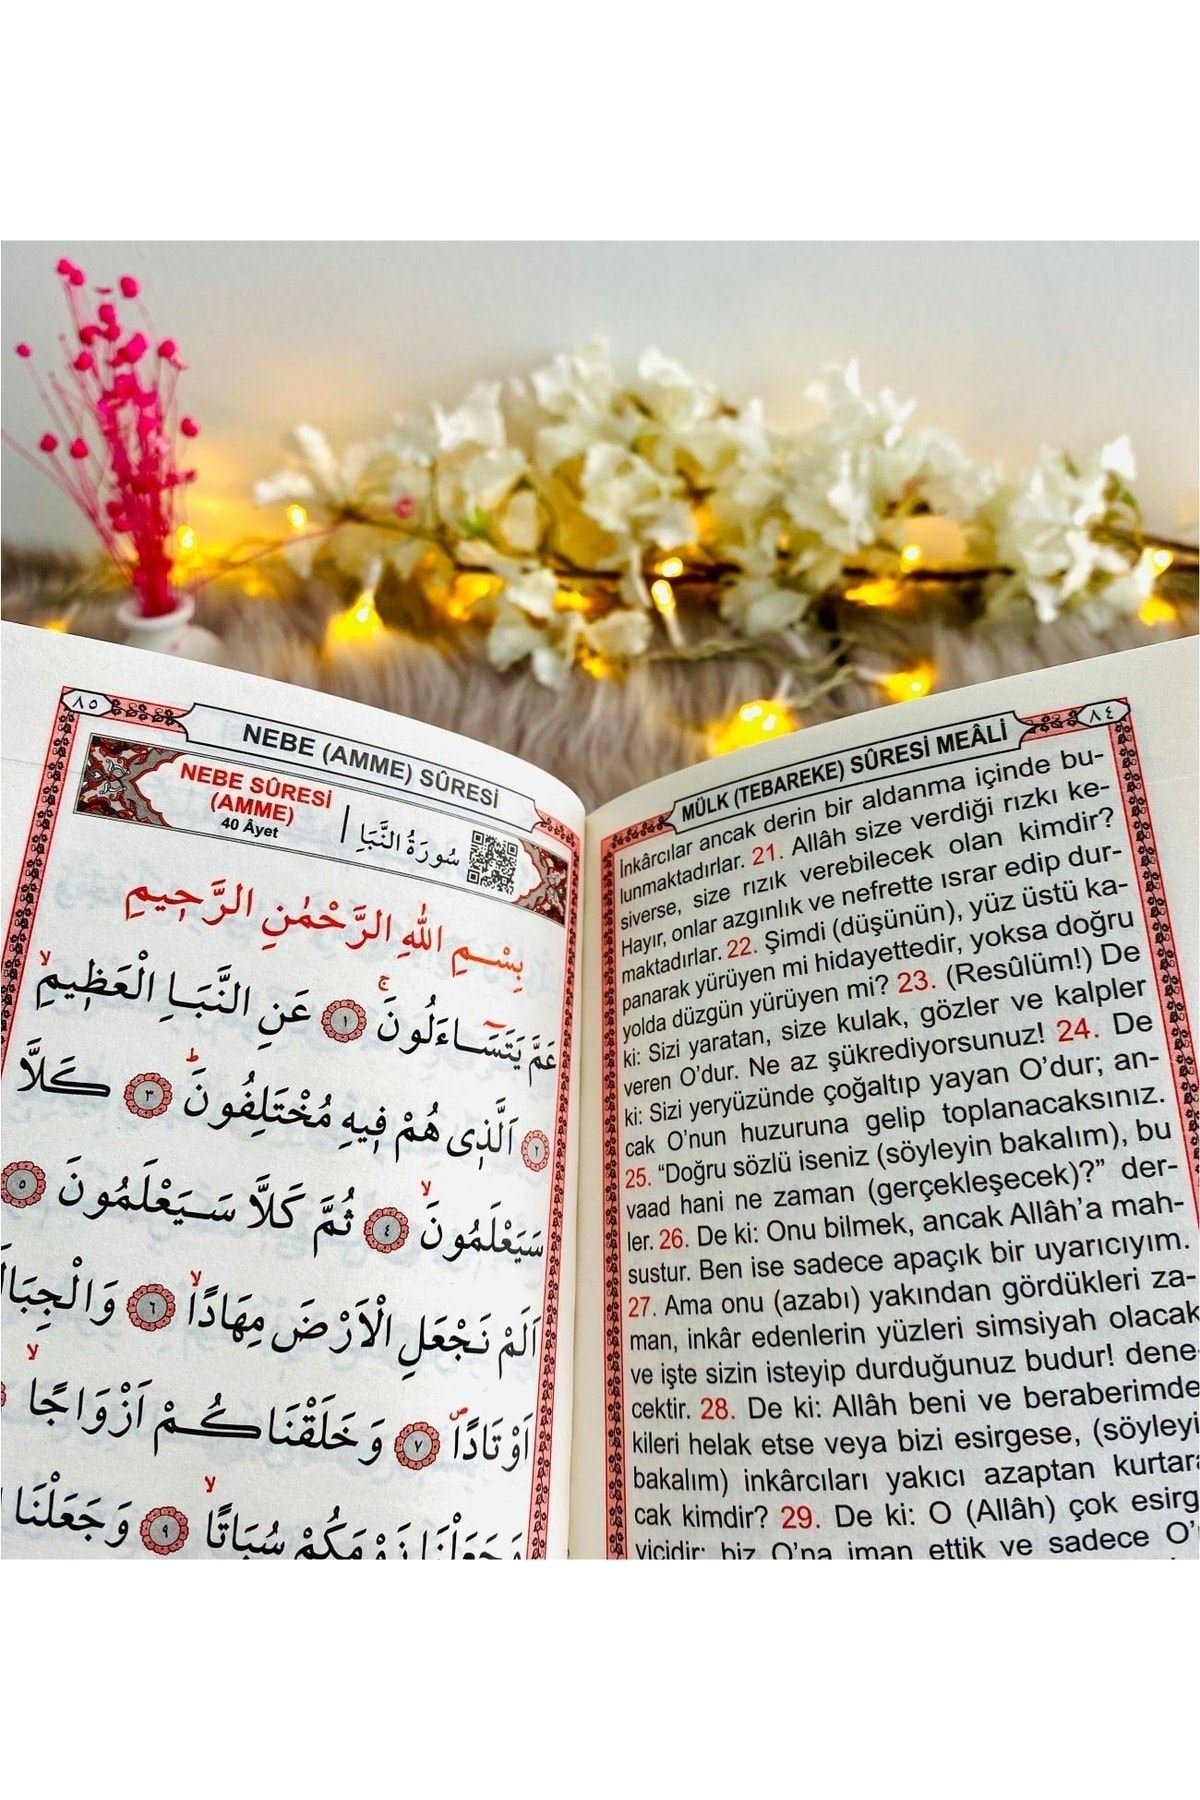 ٨٤
MÜLK (TEBAREKE) SÛRESİ MEÂLİ
İnkârcılar ancak derin bir aldanma içinde bu-
lunmaktadırlar. 21. Allâh size verdiği rızkı ke-
siverse, size rızık verebilecek olan kimdir?
Hayır, onlar azgınlık ve nefrette ısrar edip dur-
maktadırlar. 22. Şimdi (düşünün), yüz üstü ka-
panarak yürüyen mi hidayettedir, yoksa doğru
yolda düzgün yürüyen mi? 23. (Resûlüm!) De
ki: Sizi yaratan, size kulak, gözler ve kalpler
veren O’dur. Ne az şükrediyorsunuz! 24. De
ki: Sizi yeryüzünde çoğaltıp yayan O’dur; an-
cak O’nun huzuruna gelip toplanacaksınız.
25. “Doğru sözlü iseniz (söyleyin bakalım), bu
vaad hani ne zaman (gerçekleşecek)?” der-
ler. 26. De ki: Onu bilmek, ancak Allâh’a mah-
sustur. Ben ise sadece apaçık bir uyarıcıyım.
27. Ama onu (azabı) yakından gördükleri za-
man, inkâr edenlerin yüzleri simsiyah olacak
ve işte sizin isteyip durduğunuz budur! dene-
cektir. 28. De ki: Allâh beni ve beraberimde
kileri helak etse veya bizi esirgese, (söyleyi
bakalım) inkârcıları yakıcı azaptan kurtara
cak kimdir? 29. De ki: O (Allâh) çok esirg
yicidir; biz O’na iman ettik ve sadece O’
٨٥
NEBE (AMME) SÛRESİ
NEBE SÛRESİ
(AMME)
40 Âyet
سُورَةُ النَّبَإِ
بِسْمِ اللّٰهِ الرَّحْمٰنِ الرَّحٖيمِ
عَمَّ يَتَسَٓاءَلُونَۚ ١ عَنِ النَّبَاِ الْعَظٖيمِۙ
٢ اَلَّذٖى هُمْ فٖيهِ مُخْتَلِفُونَۜ ٣ كَلَّا
سَيَعْلَمُونَۙ ٤ ثُمَّ كَلَّا سَيَعْلَمُونَ ٥
اَلَمْ نَجْعَلِ الْاَرْضَ مِهَادًاۙ ٦ وَالْجِبَالَ
اَوْتَادًاۖ ٧ وَخَلَقْنَاكُمْ اَزْوَاجًاۙ
وَجَعَلْنَا نَوْمَكُمْ سُبَاتًاۙ ٩ وَجَعَلْنَا